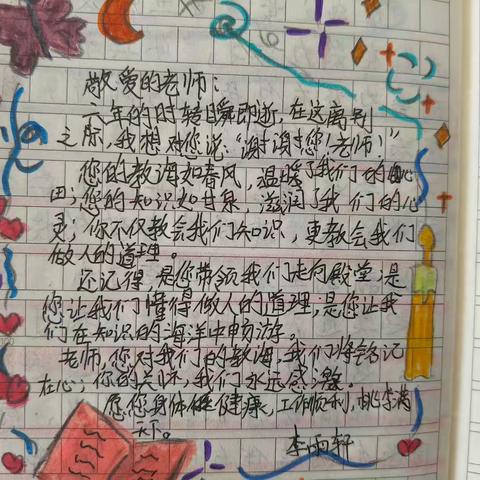 敬爱的老师：
六年的时转瞬即逝，在这离别
之际，我想对您说："谢谢您！老师！"
您的教诲如春风，温暖了我们的心
田；您的知识如甘泉，滋润了我们的心
灵；你不仅教会我们知识，更教会我们
做人的道理。
还记得，是您带领我们走向殿堂；是
您让我们懂得做人的道理；是您让我
们在知识的海洋中畅游。
老师，您对我们的教诲，我们将铭记
在心；你的关怀，我们永远感激。
愿您身体健康，工作顺利，桃李满
天下。
李雨轩